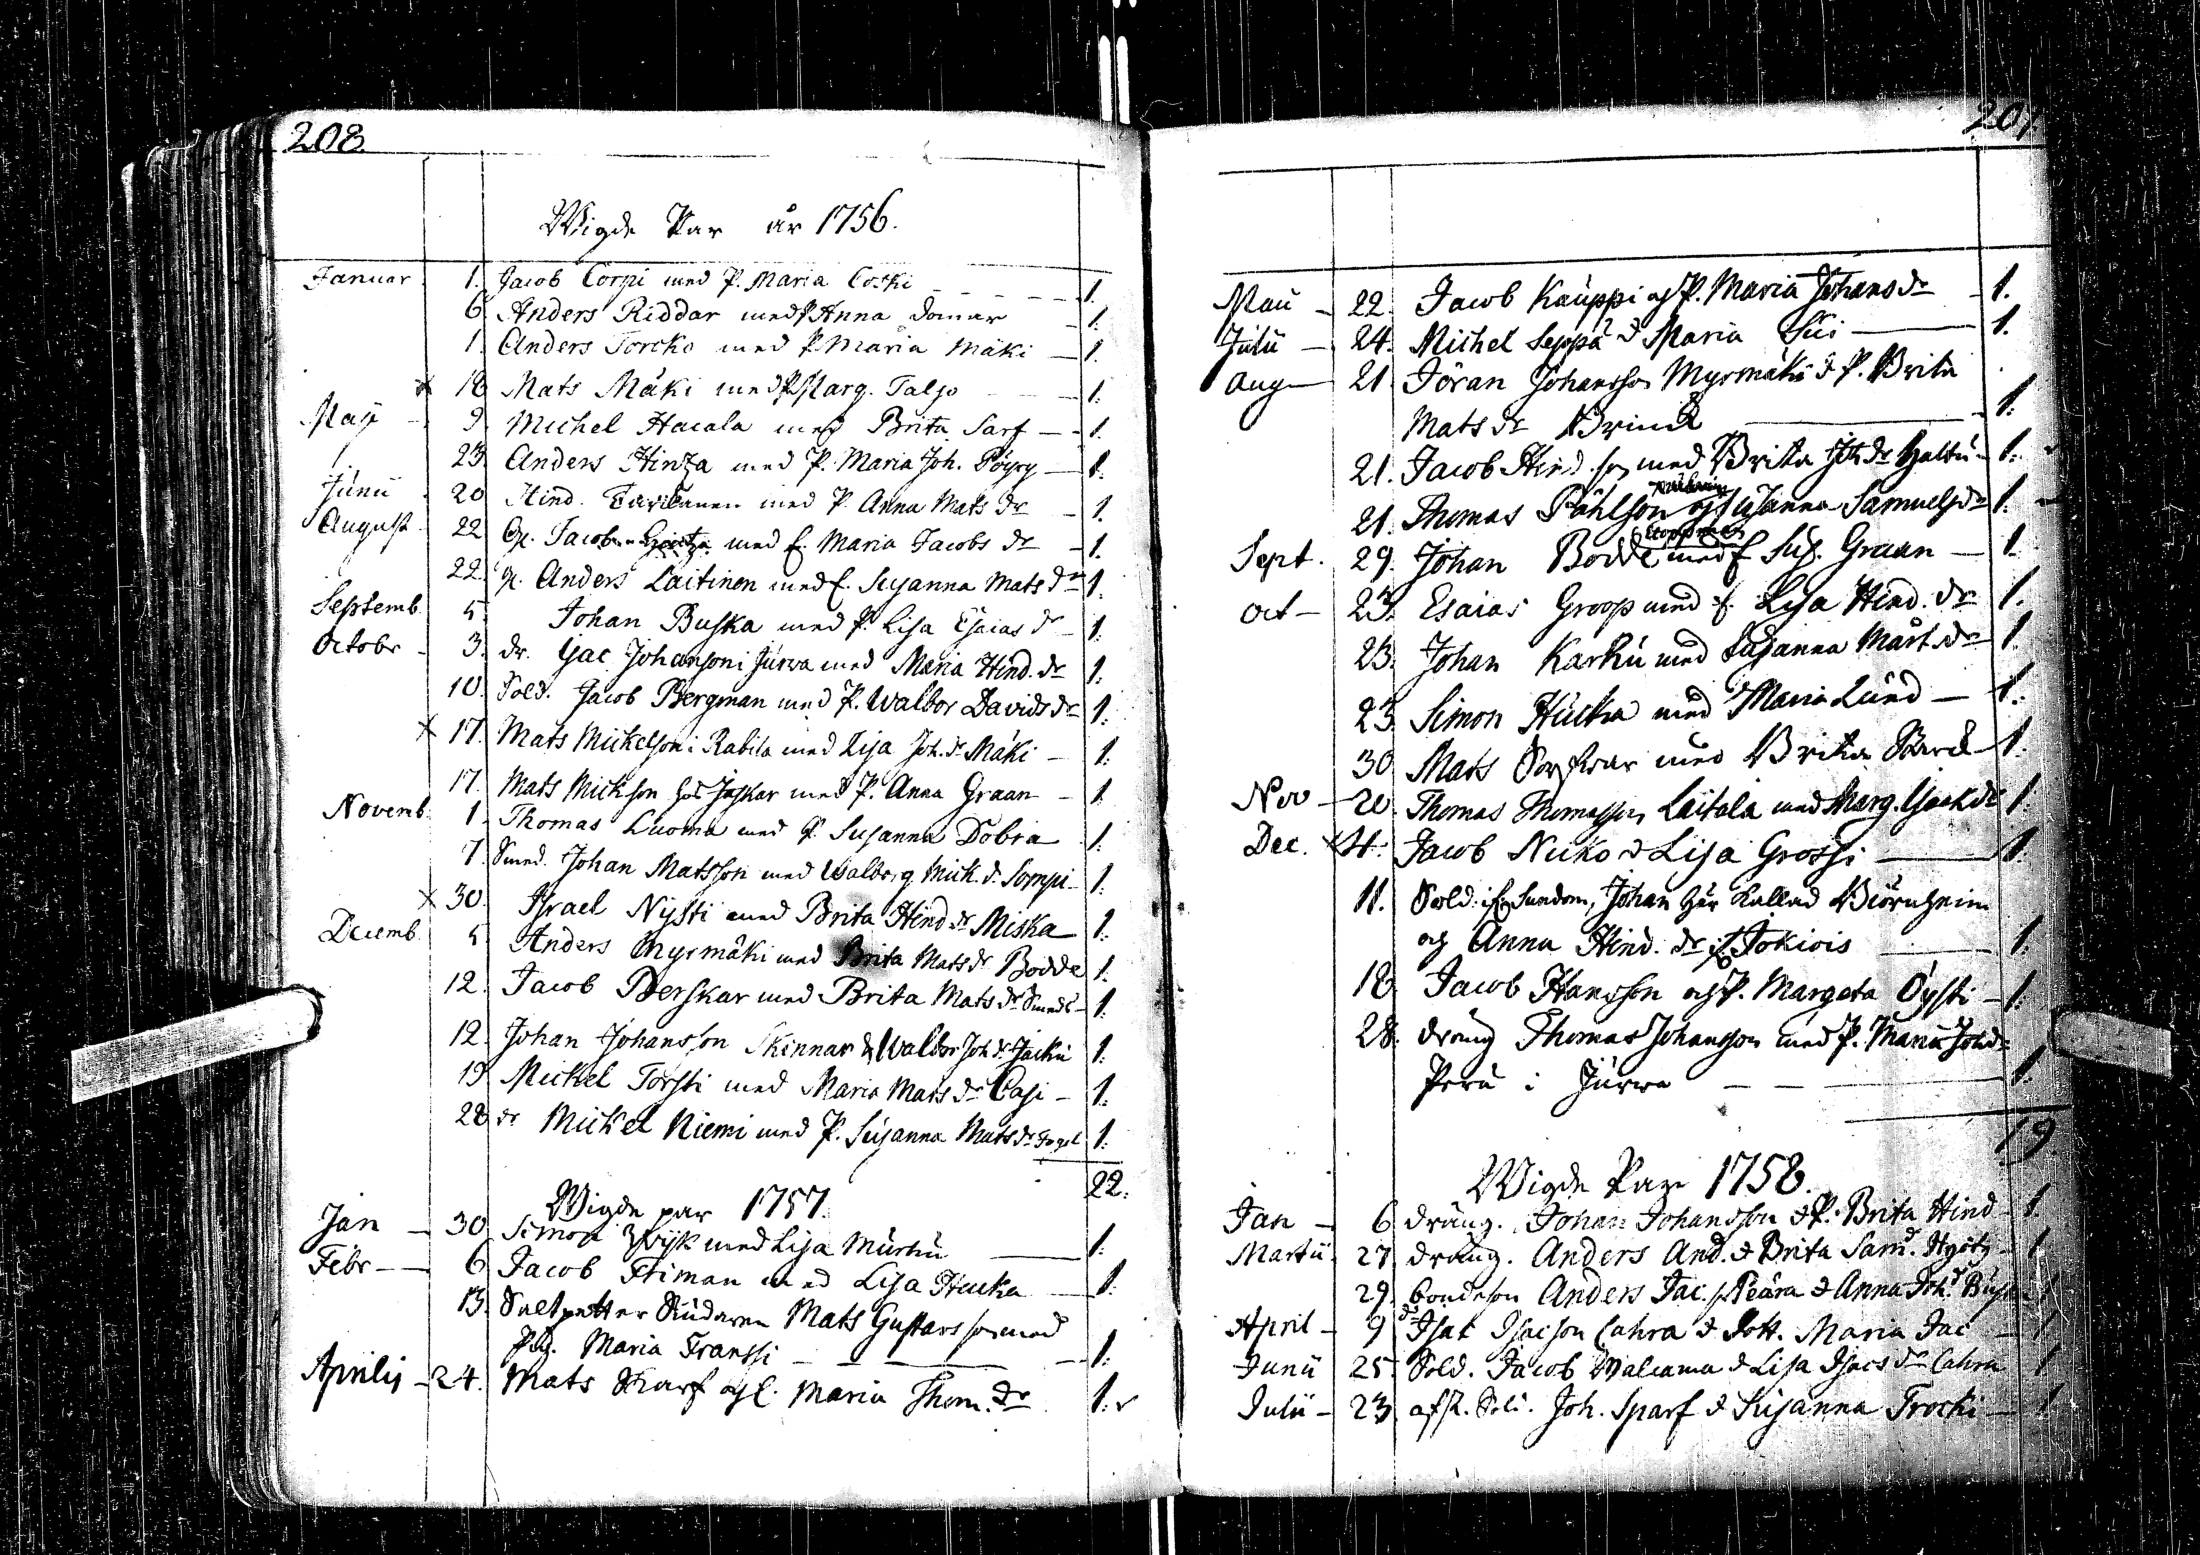 208
Wigde Par år 1756.
Januar 1. Jacob Corpi med P. Maria Coski 1.
6 Anders Riddar med P Anna Domar 1.
1. Anders Torcko med P. Maria Mäki 1.
x 18 Mats Mäki med P Marg. Taljo 1.
Maji 9 Michel Hacala med Brita Sarf 1.
23 Anders Hinza med P. Maria Joh. Pöyry 1.
Junii 20 Hind. med P. Anna Mats dr 1.
August 22 Jacob med E. Maria Jacobs dr 1.
22 Anders Laitinen med E. Susanna Mats dr 1.
Septemb. 5 Johan Buska med P. Lisa Esaias dr 1.
Octobr 3. dr. Isac Johansson i Jurva med Maria Hind. dr 1.
10. Sold. Jacob Bergman med P. Walbor Davids dr 1.
x 17. Mats Mickelson i Rabila med Lisa Joh. dr Mäki 1.
17. Mats Mickson hos Jaskar med P. Anna Graan 1
Novemb. 1. Thomas Luoma med P. Susanna Dobra 1.
7. Smed. Johan Matsson med Walborg Mick. d. Sompi 1.
x 30. Israel Nysti med Brita Hind dr Miska 1.
Decemb. 5 Anders Myrmäki med Brita Mats dr Bodde 1.
12. Jacob Berskar med Brita Mats dr Smeds 1.
12. Johan Johansson Skinnar & Walbor Joh. dr Jacku 1.
19 Mickel Torsti med Maria Mats dr Casi 1.
28 dr Mickel Niemi med P. Susanna Mats dr Fogel 1.
22.
Wigde par 1757.
Jan 30 Simon Wijk med Lisa Murku 1.
Febr 6 Jacob Friman med Lisa Hucka 1.
13. Saltpetter Siudaren Mats Gustafsson med
Pig. Maria Franssi 1.
Aprilis 24. Mats Skarf och E. Maria Thom. dr 1.
207.
Maii 22. Jacob Kauppi och P. Maria Johans dr 1.
Julii 24. Michel Seppä & Maria Sui 1.
Aug 21 Jöran Johansson Myrmäki & P. Brita
Mats dr Brinck 1.
21. Jacob Hind. son med Brita Joh dr Hattu 1.
21. Thomas Påhlson och Susanna Samuelsdr 1.
Sept. 29. Johan Bodde med E Sus. Graan 1.
Oct 23. Esaias Groop med E. Lisa Hind. dr 1.
23. Johan Karku med Susanna Mårt. dr 1.
23. Simon Hucka med Maria Lund 1.
30 Mats med Brita 1.
Nov 20. Thomas Thomasson Laitala med Marg. Isaks dr 1.
Dec. x 4. Jacob Nuko & Lisa Grossi 1.
11. Sold. i Sundom, Johan här kallad Björnheim
och Anna Hind. dr i Jokiois 1.
18 Jacob Hansson och P. Margeta Öysti 1.
28. dräng Thomas Johansson med P. Maria Joh dr
Peru i Jurwa 1.
19
Wigde Par 1758.
Jan 6 dräng. Johan Johansson & P. Brita Hind 1.
Martii 27 dräng. Anders And. & Brita Sam d. Hyöty 1
29. bondeson Anders Jac. s Peära & Anna Joh. d 1
April 9 dr Isak Isacson Cahra & dott. Maria Jac 1
Junii 25 Sold. Jacob Walcama & Lisa Isacs dr Cahra 1
Julii 23 afsk. Sold. Joh. Sparf & Susanna Trocki 1